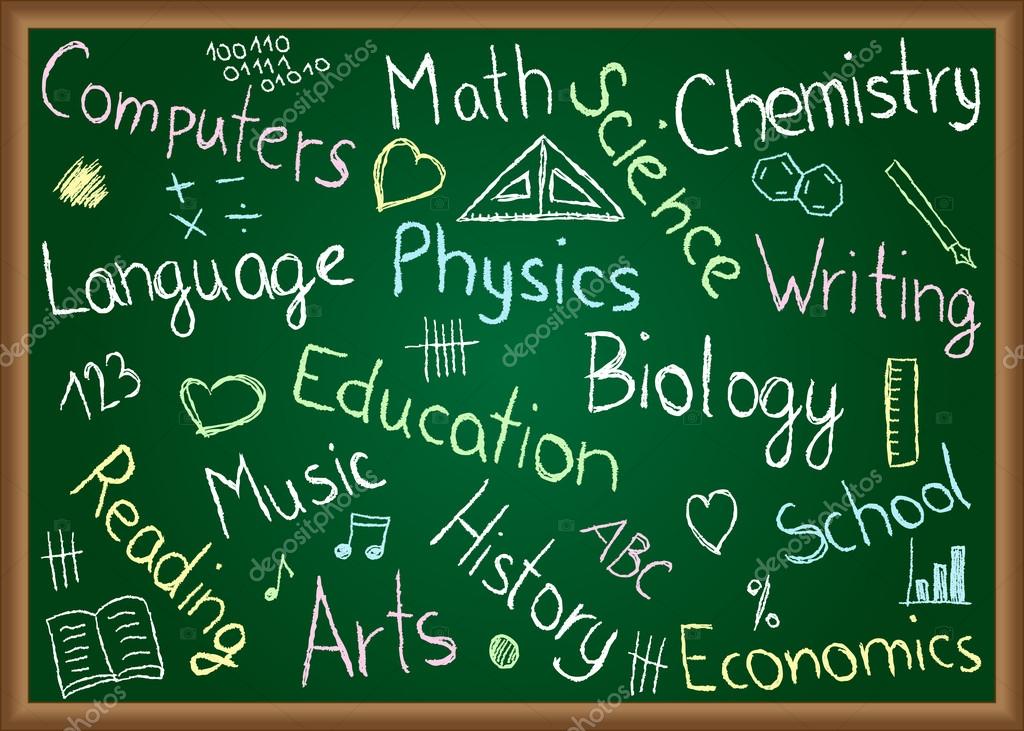 100110
01111
01010
Computers
Math
Science
Chemistry
+ −
× ÷
Language
Physics
Writing
123
Education
Biology
Reading
Music
History
ABC
School
Arts
%
Economics
depositphotos